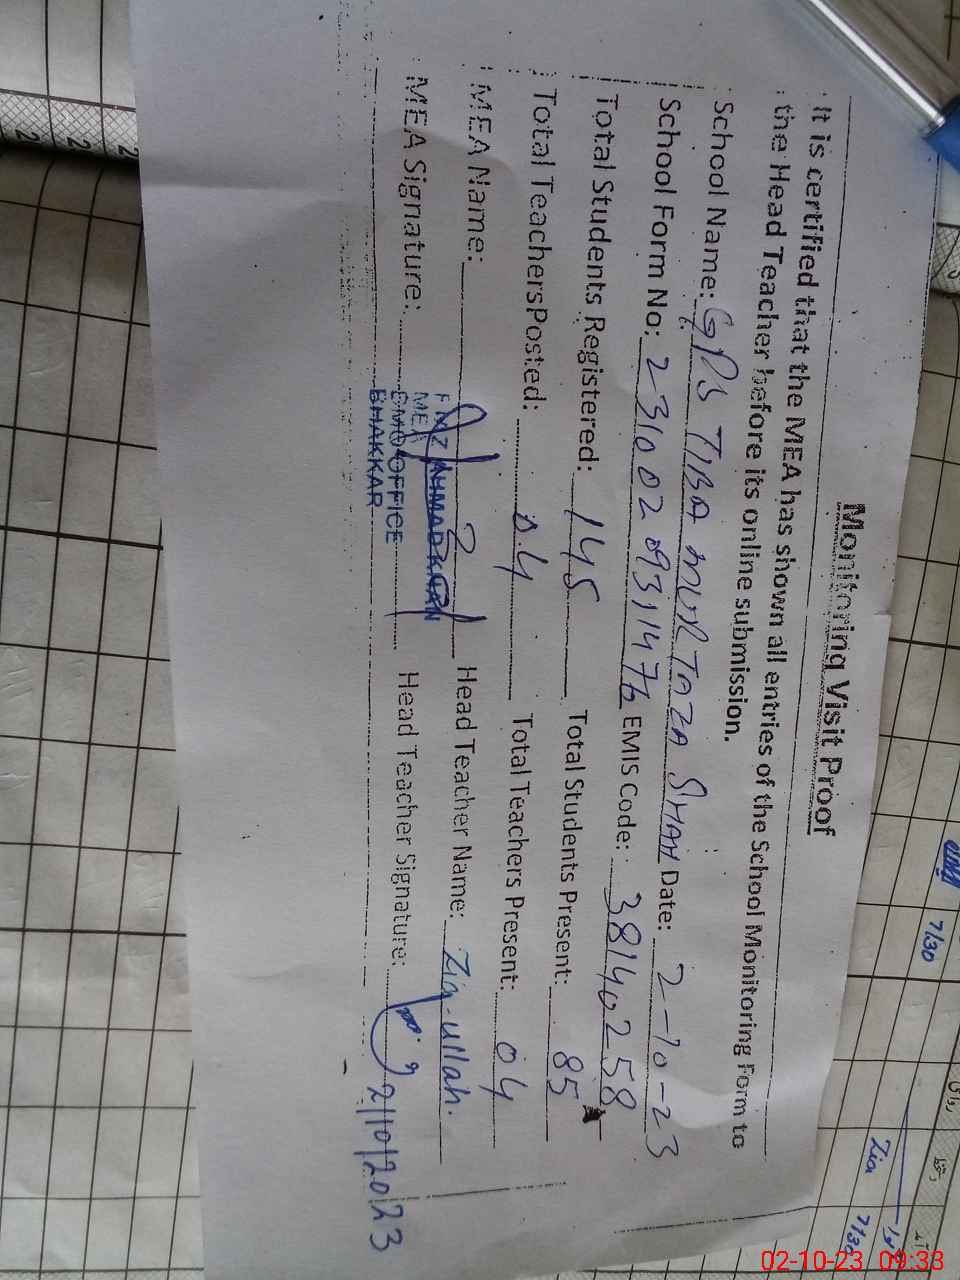 Monitoring Visit Proof
It is certified that the MEA has shown all entries of the School Monitoring Form to
the Head Teacher before its online submission.
School Name: GPS TIBA MURTAZA SHAH Date: 2-10-23
School Form No: EMIS Code: 38140258
Total Students Registered: 145 Total Students Present: 85
Total Teachers Posted: 04 Total Teachers Present: 04
MEA Name: Head Teacher Name: Zia-ullah.
MEA Signature: Head Teacher Signature: 2/10/2023
AHMAD KHAN
MEA
DMO OFFICE
BHAKKAR
7/30
Zia
7/30
02-10-23 09:33